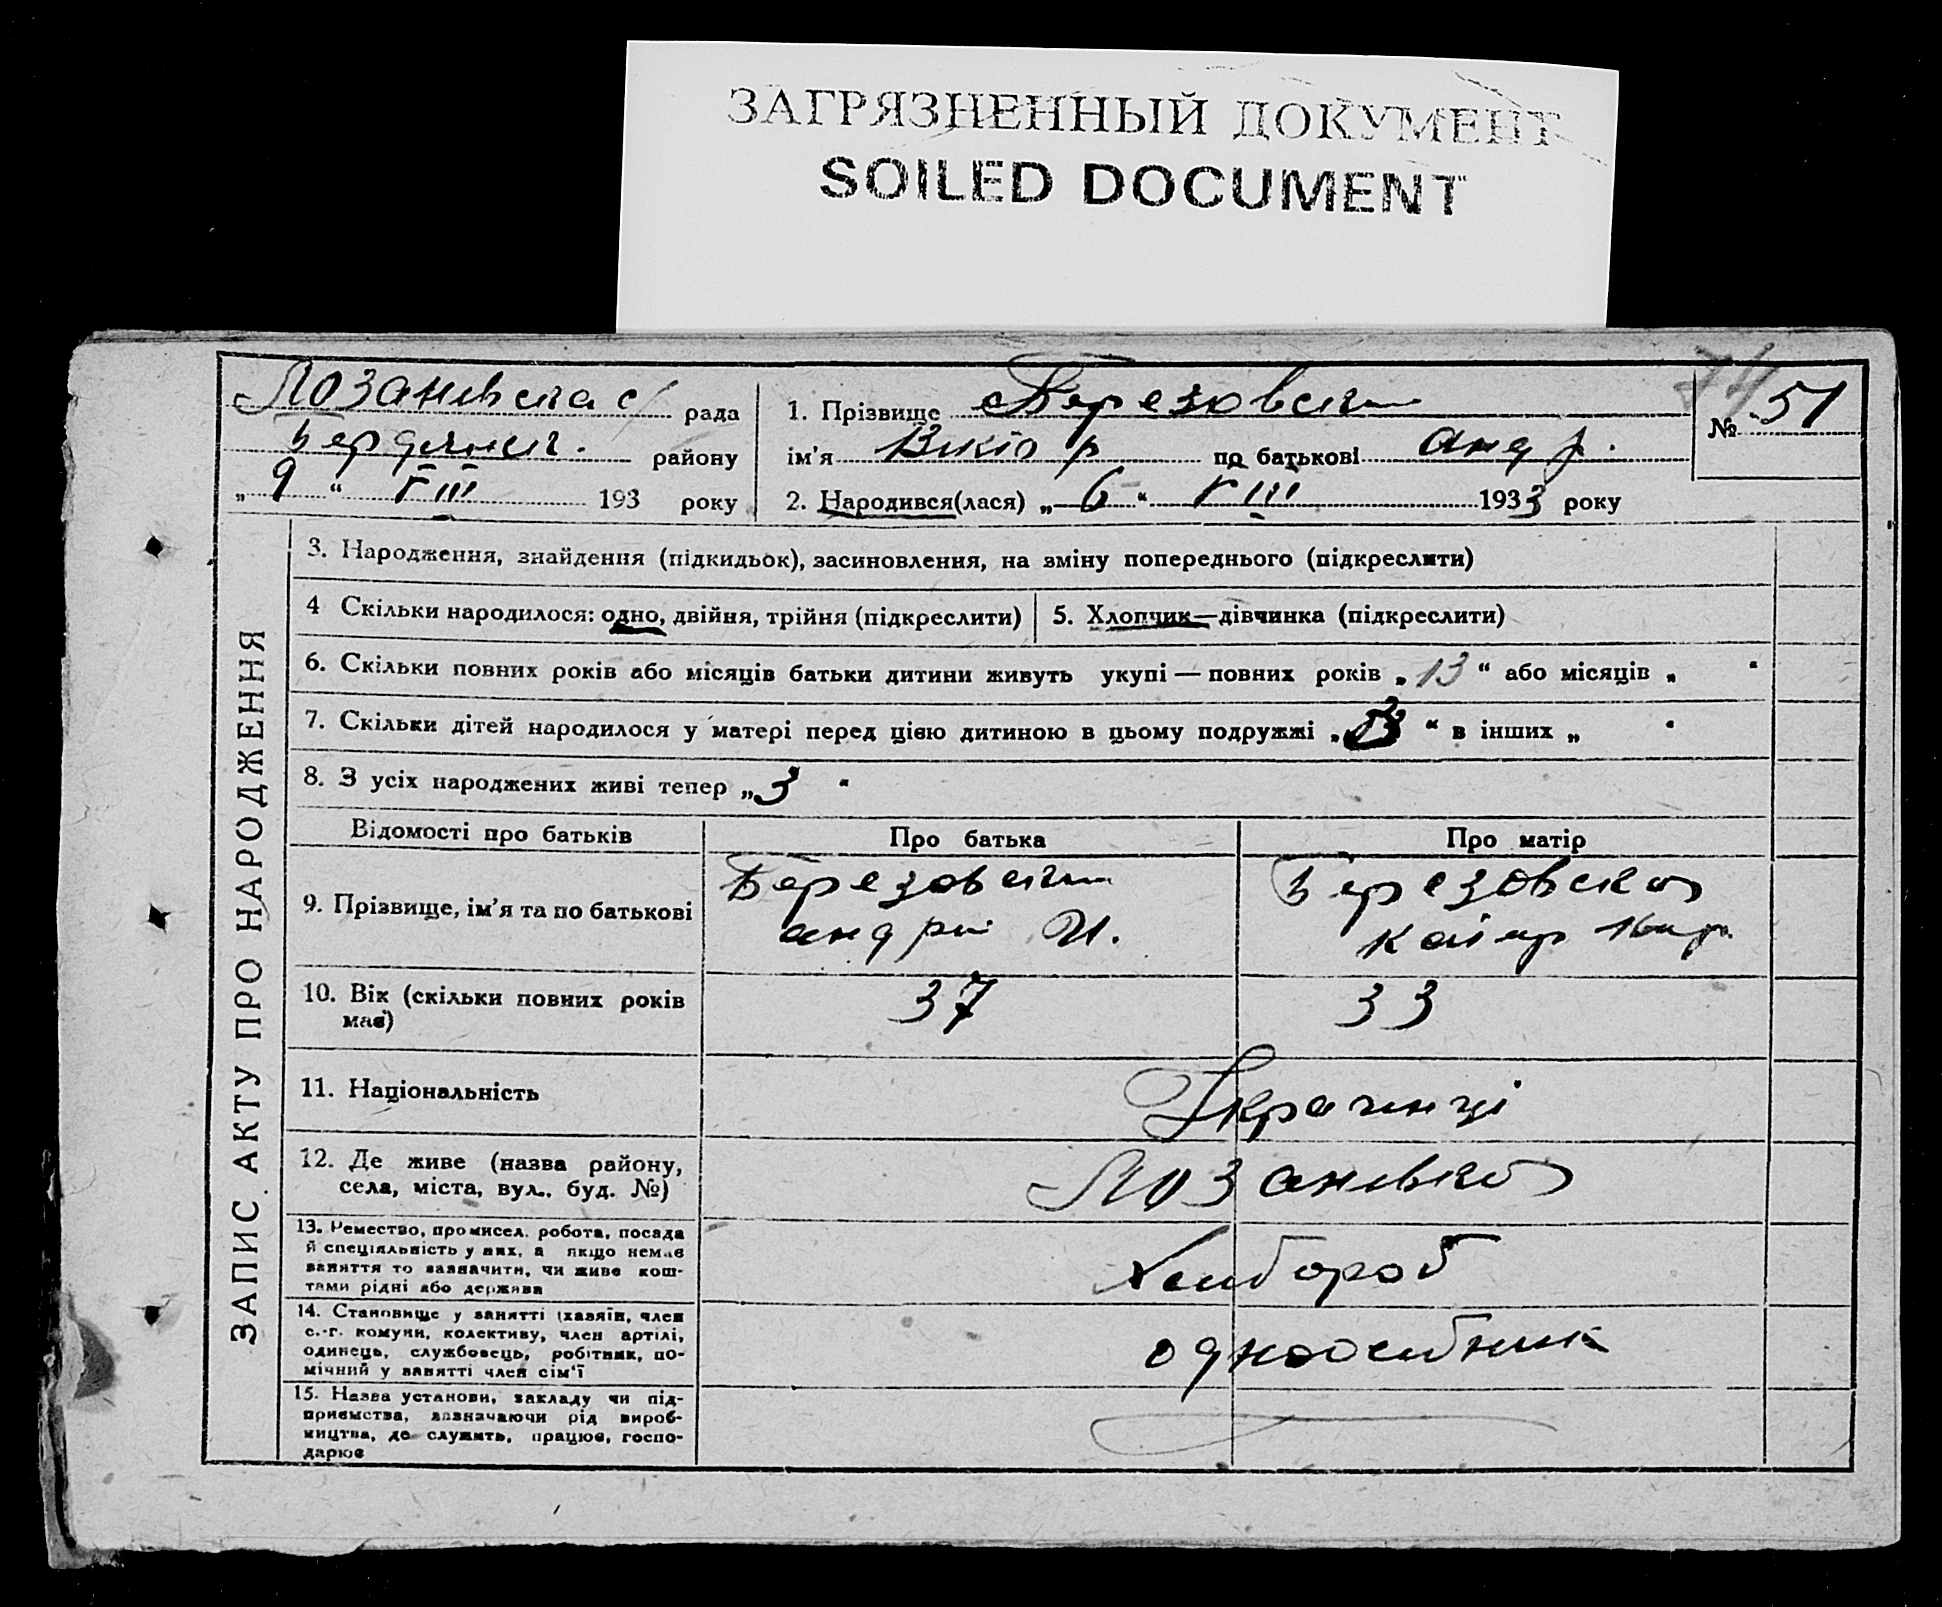 ЗАГРЯЗНЕННЫЙ ДОКУМЕНТ
SOILED DOCUMENT
Лозанивска с/ рада
Бердянськ. району
„ 9 “ VIII 193 року
1. Прізвище Березовськи
ім’я Віктор по батькові Андр.
2. Народився(лася) „ 6 “ VIII 1933 року
№ 51
ЗАПИС АКТУ ПРО НАРОДЖЕННЯ
3. Народження, знайдення (підкидьок), засиновлення, на зміну попереднього (підкреслити)
4 Скільки народилося: одно, двійня, трійня (підкреслити)
5. Хлопчик—дівчинка (підкреслити)
6. Скільки повних років або місяців батьки дитини живуть укупі — повних років „ 13 “ або місяців „ “
7. Скільки дітей народилося у матері перед цією дитиною в цьому подружжі „ 3 “ в інших „ “
8. З усіх народжених живі тепер „ 3 “
Відомості про батьків Про батька Про матір
9. Прізвище, ім’я та по батькові
Березовськи
Андрій И.
Березовска
10. Вік (скільки повних років
має)
37 33
11. Національність
Украчинці
12. Де живе (назва району,
села, міста, вул., буд. №)
Лозанивка
13. Ремество, промисел, робота, посада
й спеціяльність у них, а якщо немає
заняття то зазначити, чи живе кош-
тами рідні або держави
Хлибороб
14. Становище у занятті (хазяїн, член
с.-г. комуни, колективу, член артілі,
одинець, службовець, робітник, по-
мічний у занятті член сім’ї
односибник
15. Назва установи, закладу чи під-
приємства, зазначаючи рід вироб-
ництва, де служить, працює, госпо-
дарює